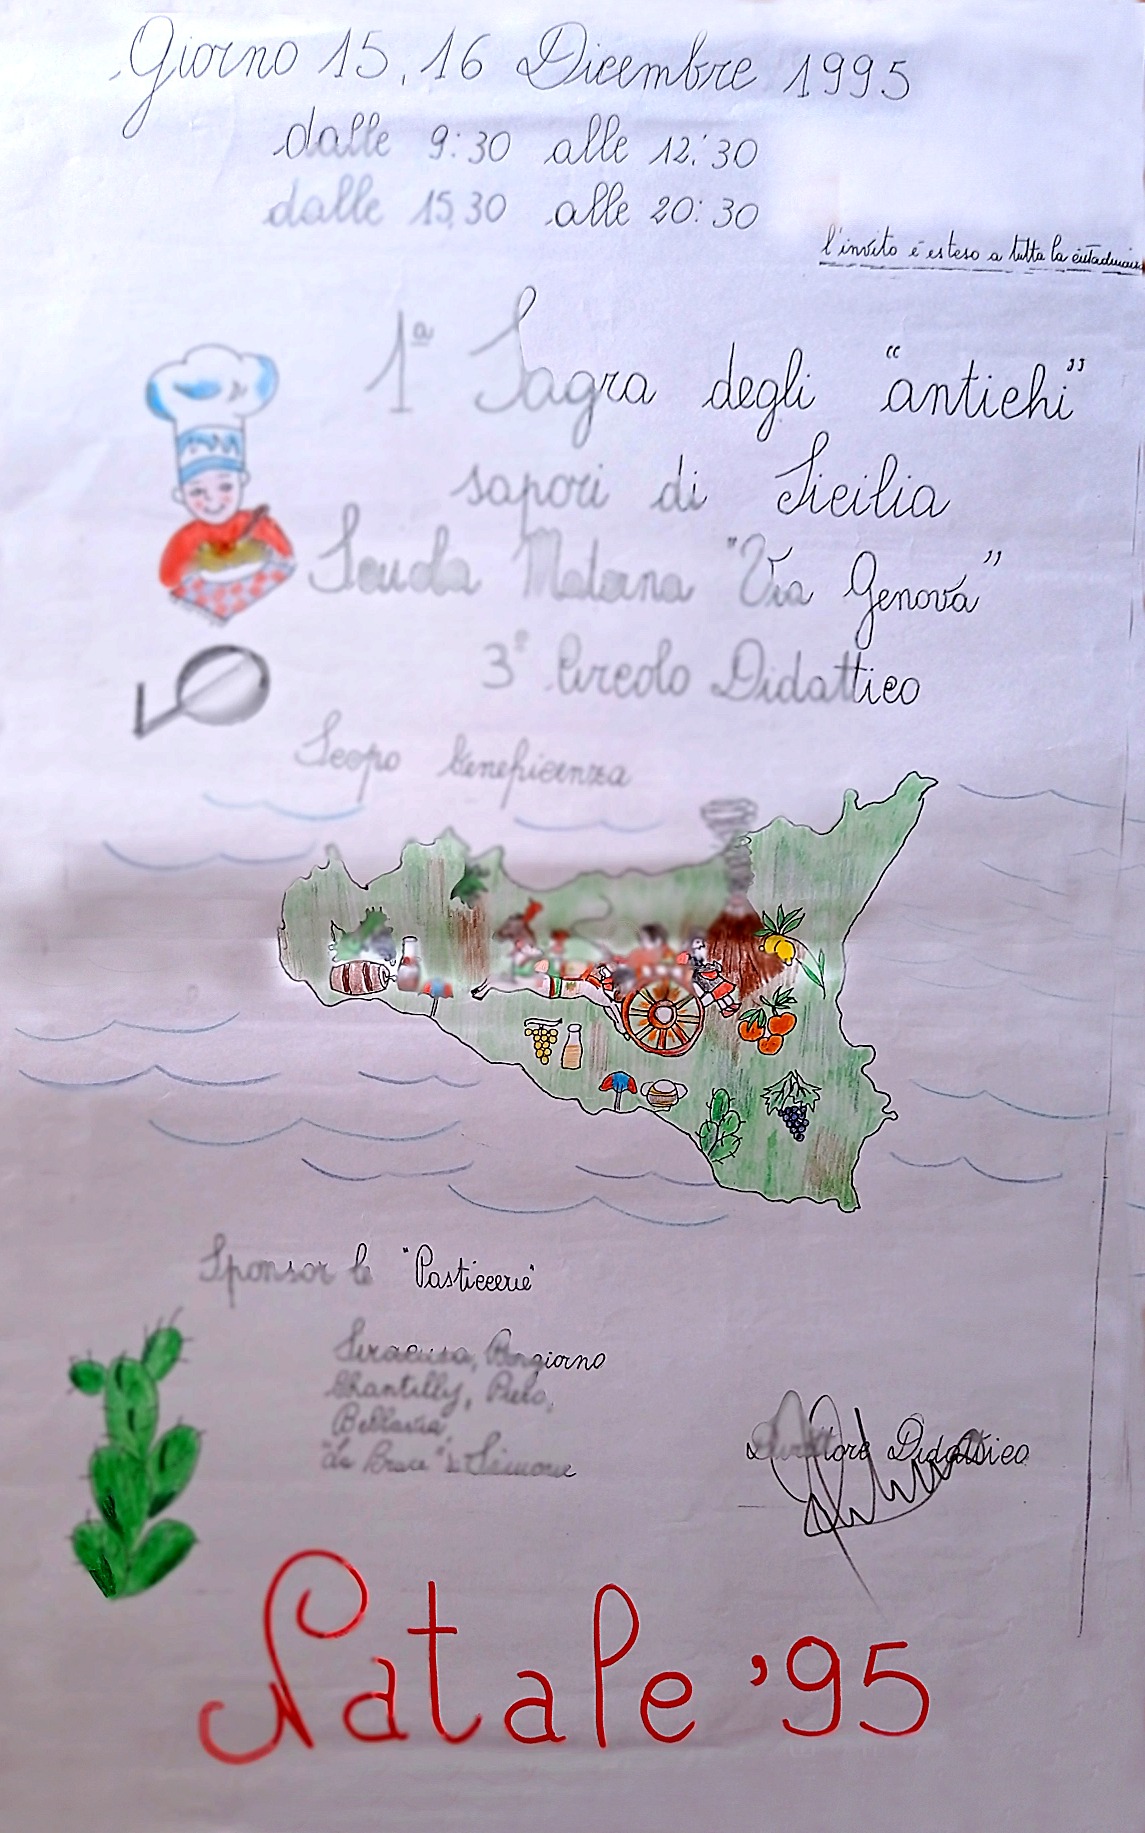 Giorno 15, 16 Dicembre 1995
dalle 9:30 alle 12:30
dalle 15,30 alle 20:30
l'invito è esteso a tutta la cittadinanza
1ª Sagra degli "antichi"
sapori di Sicilia
Scuola Materna "Via Genova"
3º Circolo Didattico
Scopo beneficenza
Sponsor le "Pasticcerie"
Siracusa, Bongiorno
Chantilly,
Bellavia,
Direttore Didattico
Natale '95